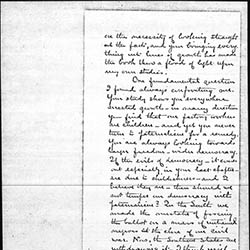 on the necessity of looking straight
at the facts, and your bringing every-
thing into lines of growth has made
the book throw a flood of light upon
my own studies.
One fundamental question
I found always confronting me.
Your study shows you everywhere
arrested growth — in many directions
you find that our factory workers
are children — and yet you never
turn to paternalism for a remedy.
You are always looking toward
larger freedom — wider democracy.
If the evils of democracy — it comes
out especially in your last chapter
are due to childishness — and
I believe they are — then should we
not temper our democracy with
paternalism? In the South we
made the mistake of forcing
the ballot on a mass of untrained
negroes at the close of our civil
war. Now, the Southern States